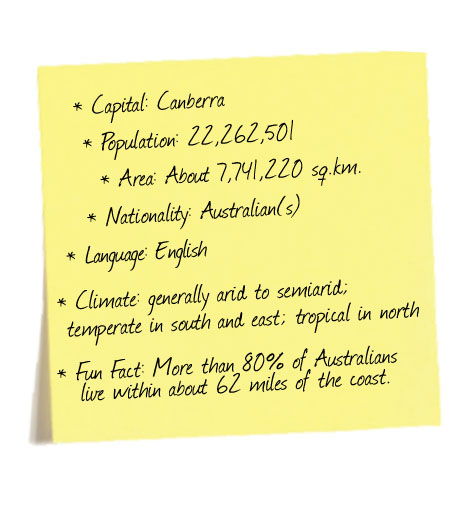 * Capital: Canberra
* Population: 22,262,501
* Area: About 7,741,220 sq.km.
* Nationality: Australian(s)
* Language: English
* Climate: generally arid to semiarid;
temperate in south and east; tropical in north
* Fun Fact: More than 80% of Australians
live within about 62 miles of the coast.